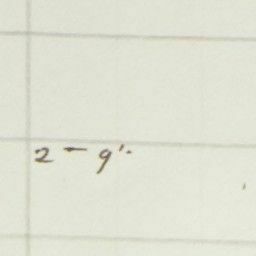 2 - 9'.